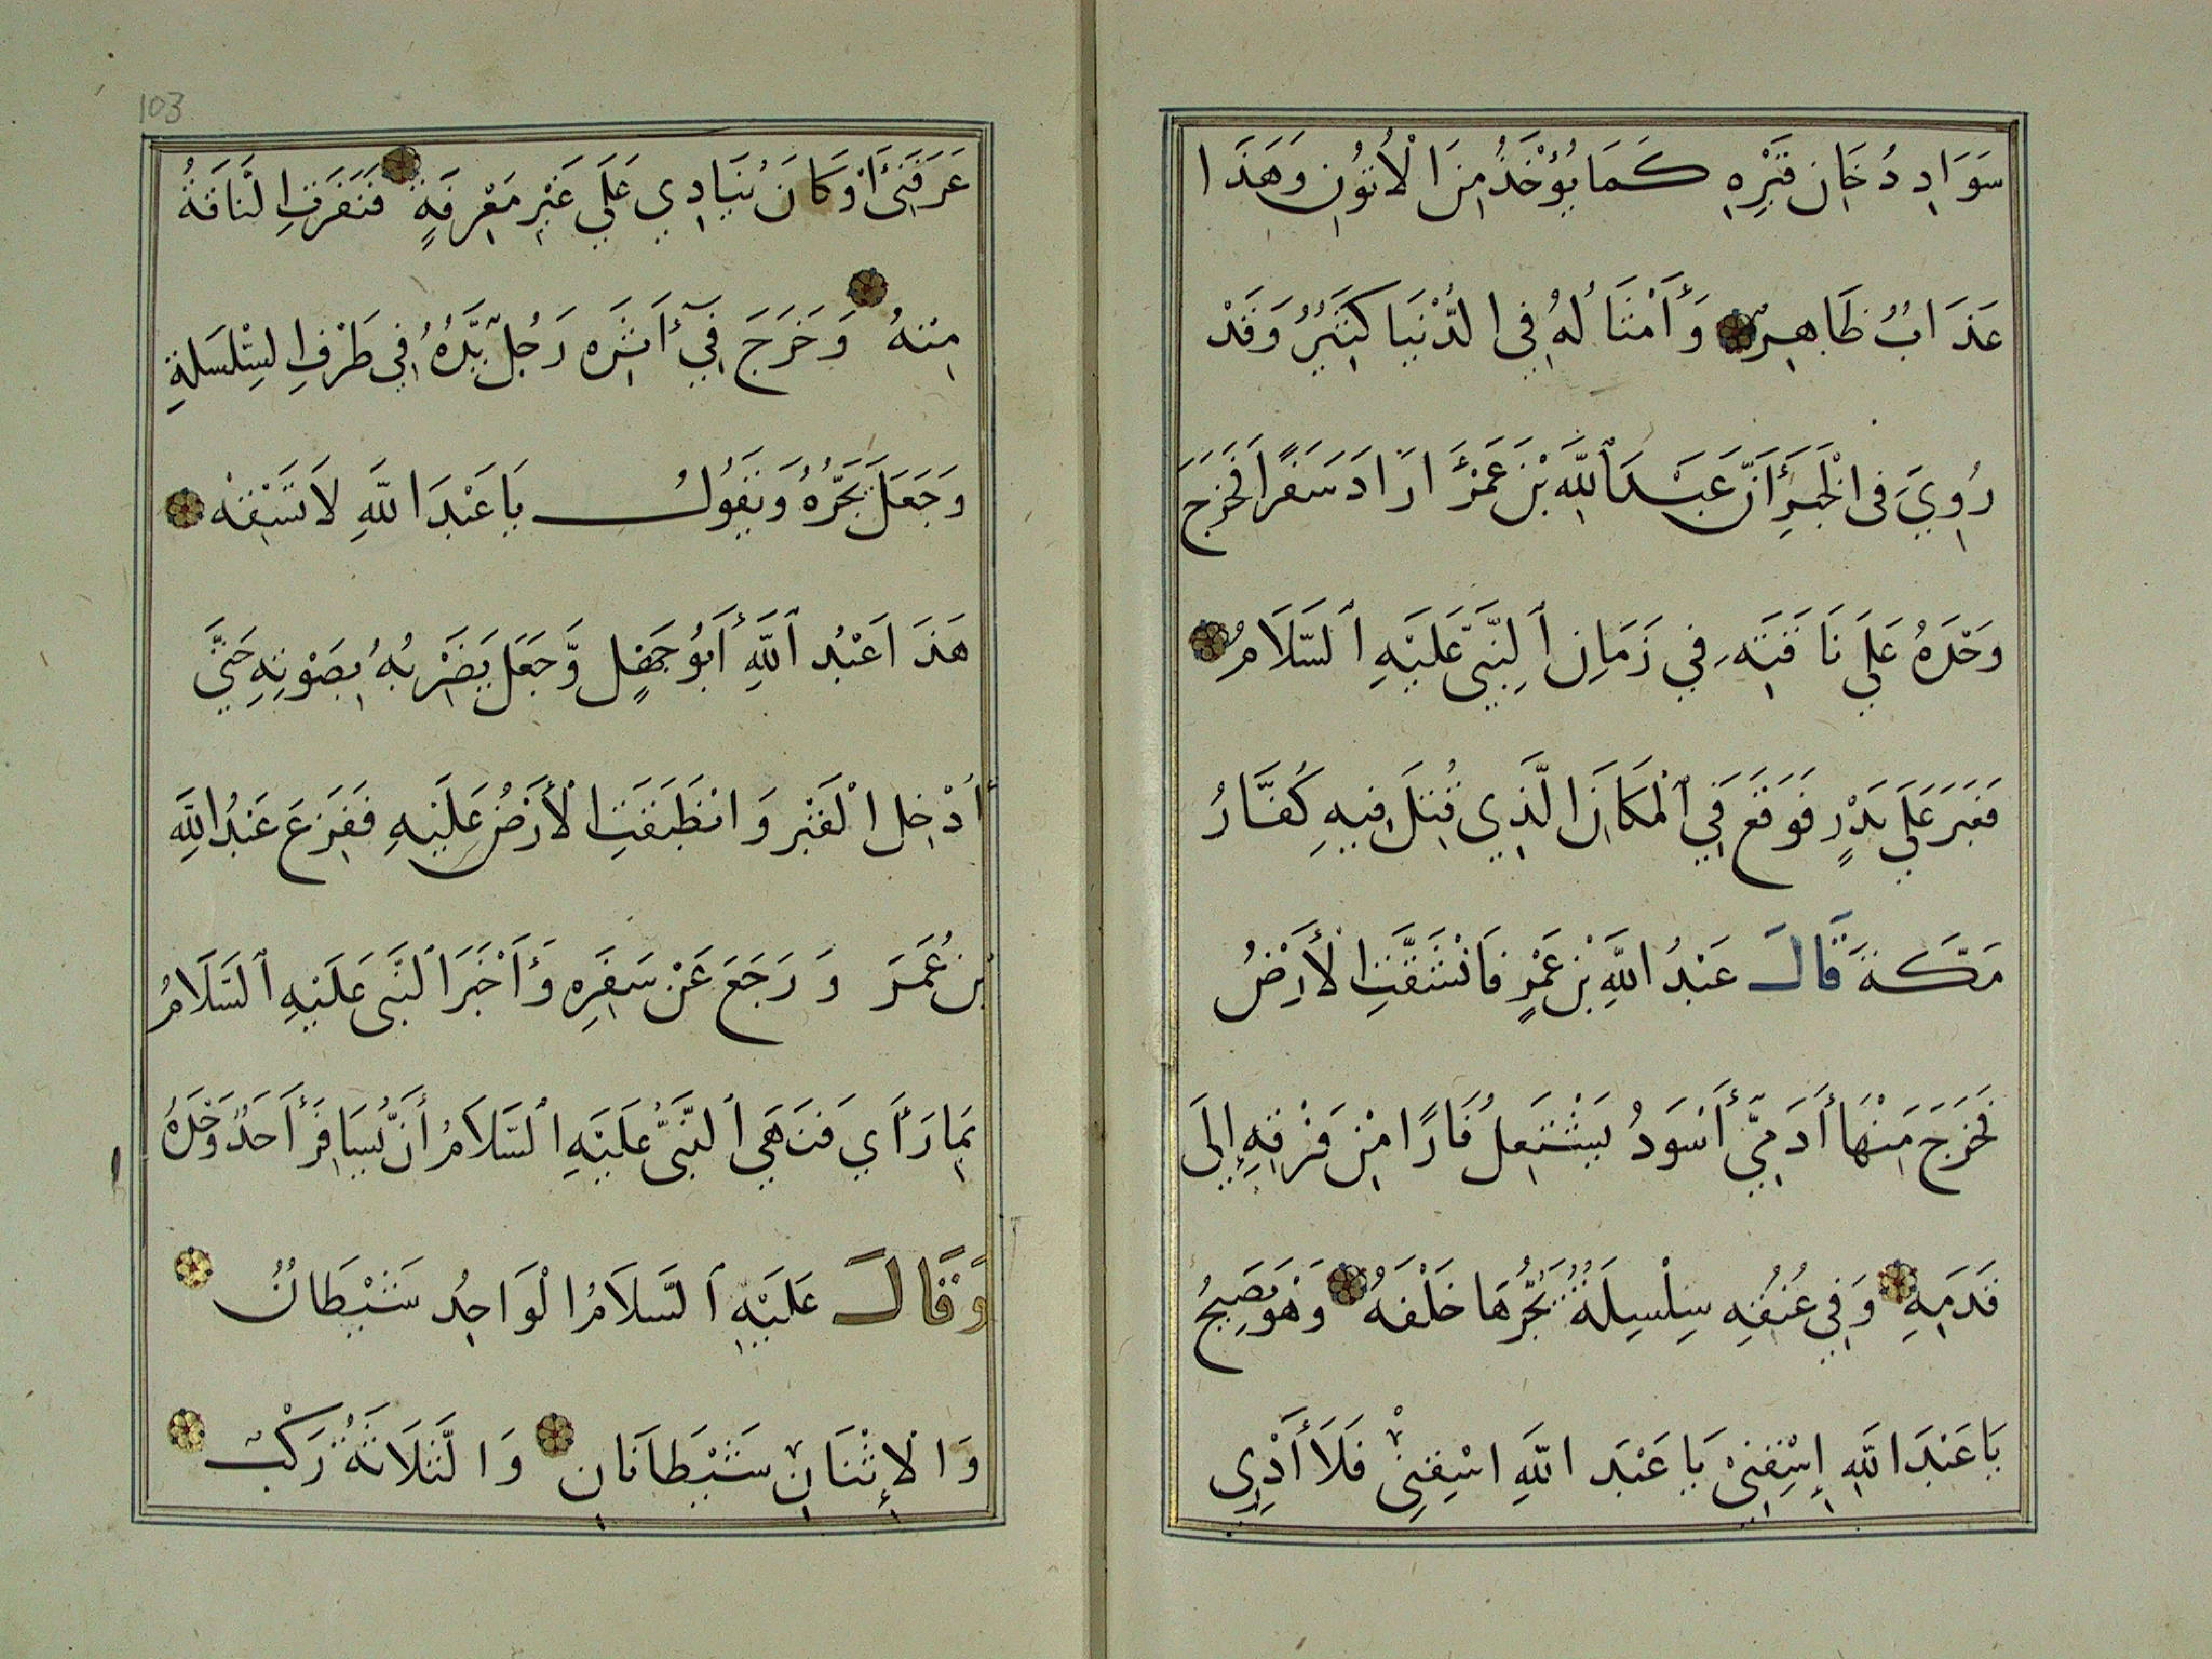 سَوَادِ دُخَانِ قَبْرِهِ كَمَا يُؤْخَذُ مِنَ الْأَتُونِ وَهَذَا
عَذَابٌ ظَاهِرٌ وَأَمْثَالُهُ فِي الدُّنْيَا كَثِيرٌ وَقَدْ
رُوِيَ فِي الْخَبَرِ أَنَّ عَبْدَ اللَّهِ بْنَ عَمْرٍ أَرَادَ سَفَرًا فَخَرَجَ
وَحْدَهُ عَلَى نَاقَتِهِ فِي زَمَانِ النَّبِيِّ عَلَيْهِ السَّلَامُ
فَعَبَرَ عَلَى بَدْرٍ فَوَقَعَ فِي الْمَكَانِ الَّذِي قُتِلَ فِيهِ كُفَّارُ
مَكَّةَ قَالَ عَبْدُ اللَّهِ بْنُ عَمْرٍ فَانْشَقَّتِ الْأَرْضُ
فَخَرَجَ مِنْهَا أَدَمِيٌّ أَسْوَدُ يَشْتَعِلُ نَارًا مِنْ فَرْقِهِ إِلَى
قَدَمِهِ وَفِي عُنُقِهِ سِلْسِلَةٌ يَجُرُّهَا خَلْفَهُ وَهُوَ يَصِيحُ
يَا عَبْدَ اللَّهِ إِسْقِنِي يَا عَبْدَ اللَّهِ اسْقِنِي فَلَا أَدْرِي
103
عَرَفَنِي أَوْ كَانَ يُنَادِي عَلَى غَيْرِ مَعْرِفَةٍ فَنَفَرَتِ النَّاقَةُ
مِنْهُ وَخَرَجَ فِي أَثَرِهِ رَجُلٌ يَدُهُ فِي طَرْفِ السِّلْسَلَةِ
وَجَعَلَ يَجُرُّهُ وَيَقُولُ يَا عَبْدَ اللَّهِ لَا تَسْقِهْ
هَذَا عَبْدُ اللَّهِ أَبُو جَهْلٍ وَجَعَلَ يَضْرِبُهُ بِصَوْتِهِ حَتَّى
أُدْخِلَ الْقَبْرَ وَانْطَبَقَتِ الْأَرْضُ عَلَيْهِ فَفَزِعَ عَبْدُ اللَّهِ
بْنُ عُمَرَ وَرَجَعَ عَنْ سَفَرِهِ وَأَخْبَرَ النَّبِيَّ عَلَيْهِ السَّلَامُ
بِمَا رَأَى فَنَهَى النَّبِيُّ عَلَيْهِ السَّلَامُ أَنْ يُسَافِرَ أَحَدٌ وَحْدَهُ
وَقَالَ عَلَيْهِ السَّلَامُ الْوَاحِدُ شَيْطَانٌ
وَالْإِثْنَانِ شَيْطَانَانِ وَالثَّلَاثَةُ رَكْبٌ